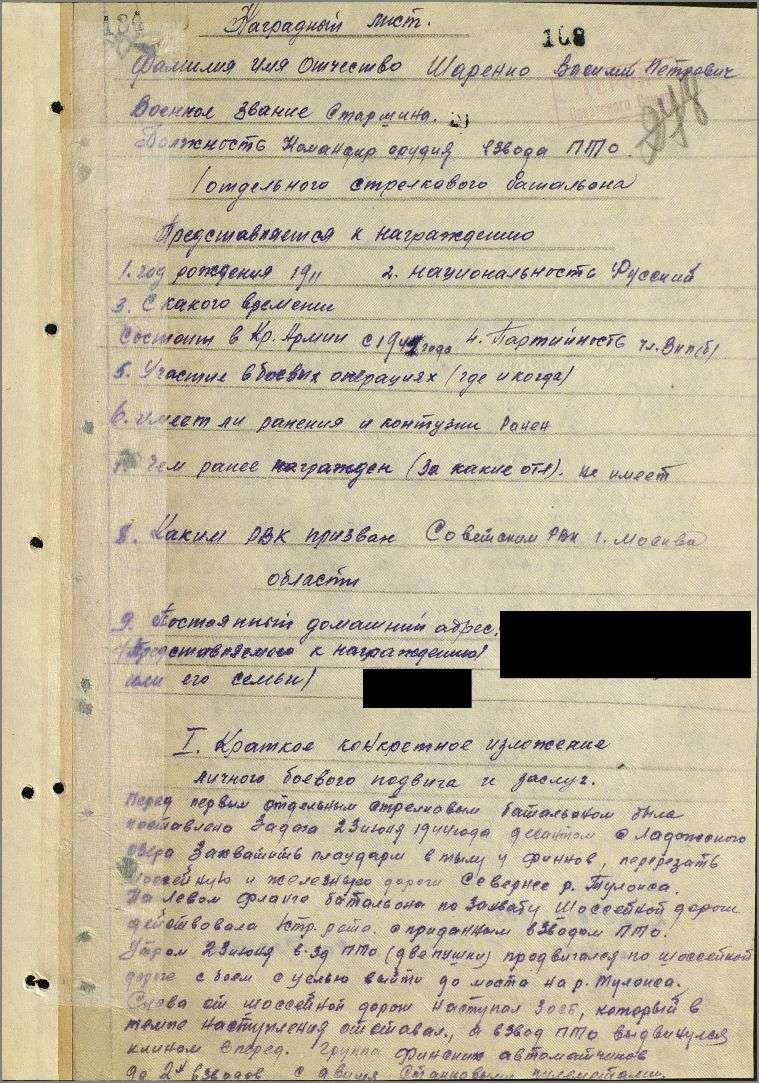 184
Наградной лист.
108
Фамилия Имя Отчество Шаренко Василий Петрович
Военное Звание Старшина.
Должность Командир орудия взвода ПТО
1 отдельного стрелкового батальона
Представляется к награждению
1. год рождения 1911 2. национальность Русский
3. С какого времени
состоит в Кр. Армии с 1941 года 4. Партийность чл. Вкп(б)
5. Участие в боевых операциях (где и когда)
6. имеет ли ранения и контузии Ранен
7. Чем ранее награжден (за какие отл). не имеет
8. Каким РВК призван Советским РВк г. Москва
области
9. Постоянный домашний адрес,
(Представляемого к награждению)
или его семьи)
I. Краткое конкретное изложение
личного боевого подвига и заслуг.
Перед первым отдельным стрелковым батальоном была
поставлена Задача 23 июня 1944 года десантом с Ладожского
озера Захватить плацдарм в тылу у финнов, перерезать
шоссейную и железную дороги Севернее р. Тулокса.
На левом фланге батальона по захвату шоссейной дороги
действовала 1 стр. рота. с приданным взводом ПТО.
Утром 23 июня в-зд ПТО (две пушки) продвигался по шоссейной
дороге с боем с целью выйти до моста на р. Тулокса.
Слева от шоссейной дороги наступал 3 осб, который в
темпе наступления отставал, а взвод ПТО выдвинулся
клином вперед. Группа финских автоматчиков
до 2х взводов с двумя Станковыми пулеметами.